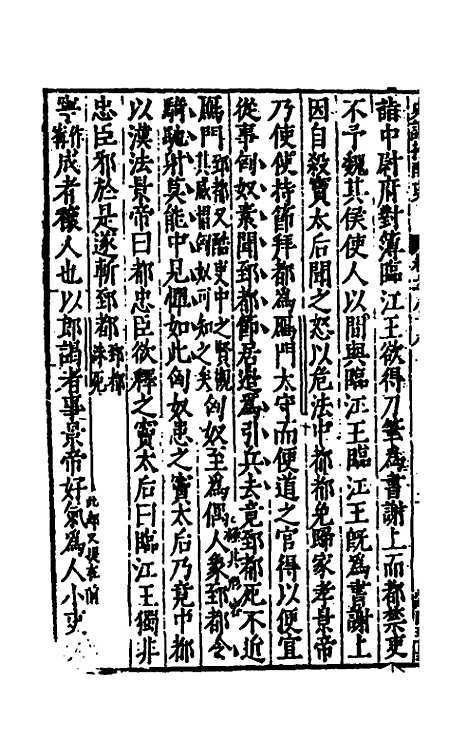 詣中尉府對簿臨江王欲得刀筆為書謝上而都禁吏
不予魏其侯使人以間與臨江王臨江王既為書謝上
因自殺竇太后聞之怒以危法中都都免歸家孝景帝
乃使使持節拜都為鴈門太守而便道之官得以便宜
從事匈奴素聞郅都節居邊為引兵去竟郅都死不近
鴈門郅都又酷吏中之賢觀其威慴匈奴可知之矣匈奴至為偶人象郅都令
騎馳射莫能中見憚如此匈奴患之竇太后乃竟中都
以漢法景帝曰都忠臣欲釋之竇太后曰臨江王獨非
忠臣邪於是遂斬郅都郅都誅死
寧作甯成者穰人也以郎謁者事景帝好氣為人小吏